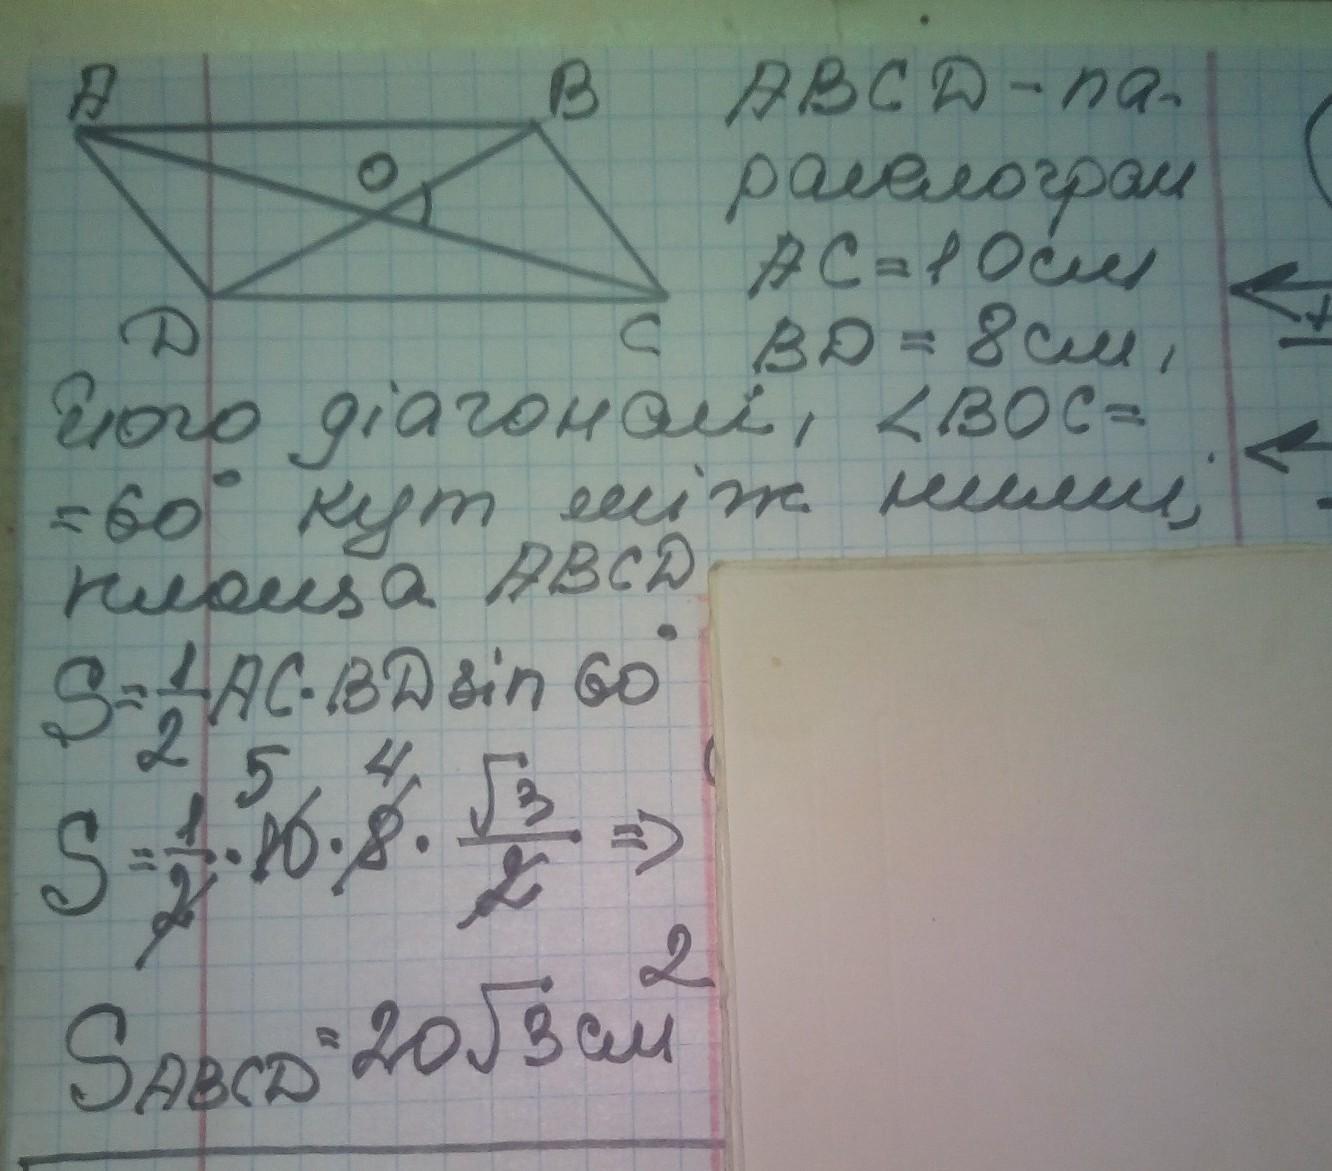 A B ABCD - па-
ралелограм
O
AC = 10см
D C BD = 8см,
його діагоналі, ∠BOC =
= 60° кут між ними,
площа ABCD
S = 1/2 AC · BD sin 60°
5 4
S = 1/2 · 10 · 8 · √3/2 =>
S ABCD = 20√3 см²